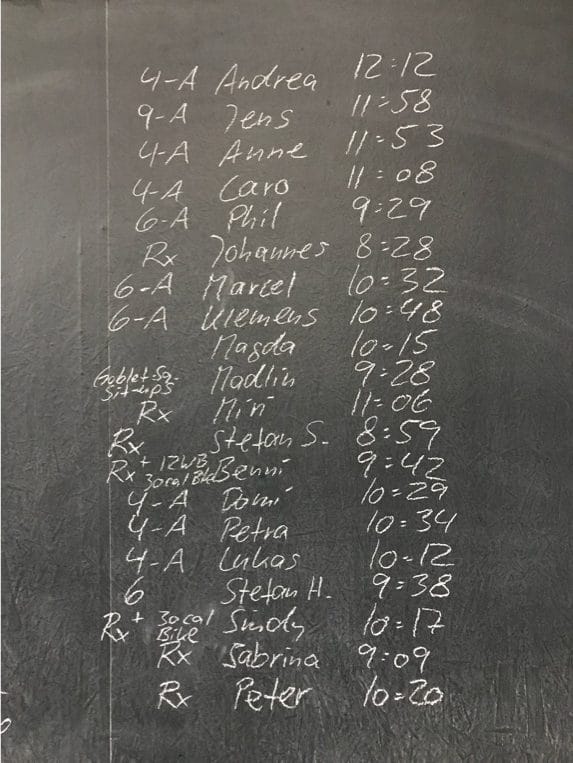 4-A Andrea 12:12
9-A Jens 11:58
4-A Anne 11:53
4-A Caro 11:08
6-A Phil 9:29
Rx Johannes 8:28
6-A Marcel 10:32
6-A Klemens 10:48
Magda 10:15
Goblet-Sq. Sit-ups Madlin 9:28
Rx Miri 11:06
Rx Stefan S. 8:59
Rx + 12WB 30cal Bike Benni 9:42
4-A Domi 10:29
4-A Petra 10:34
4-A Lukas 10:12
6 Stefan H. 9:38
Rx + 30cal Bike Sindy 10:17
Rx Sabrina 9:09
Rx Peter 10:20